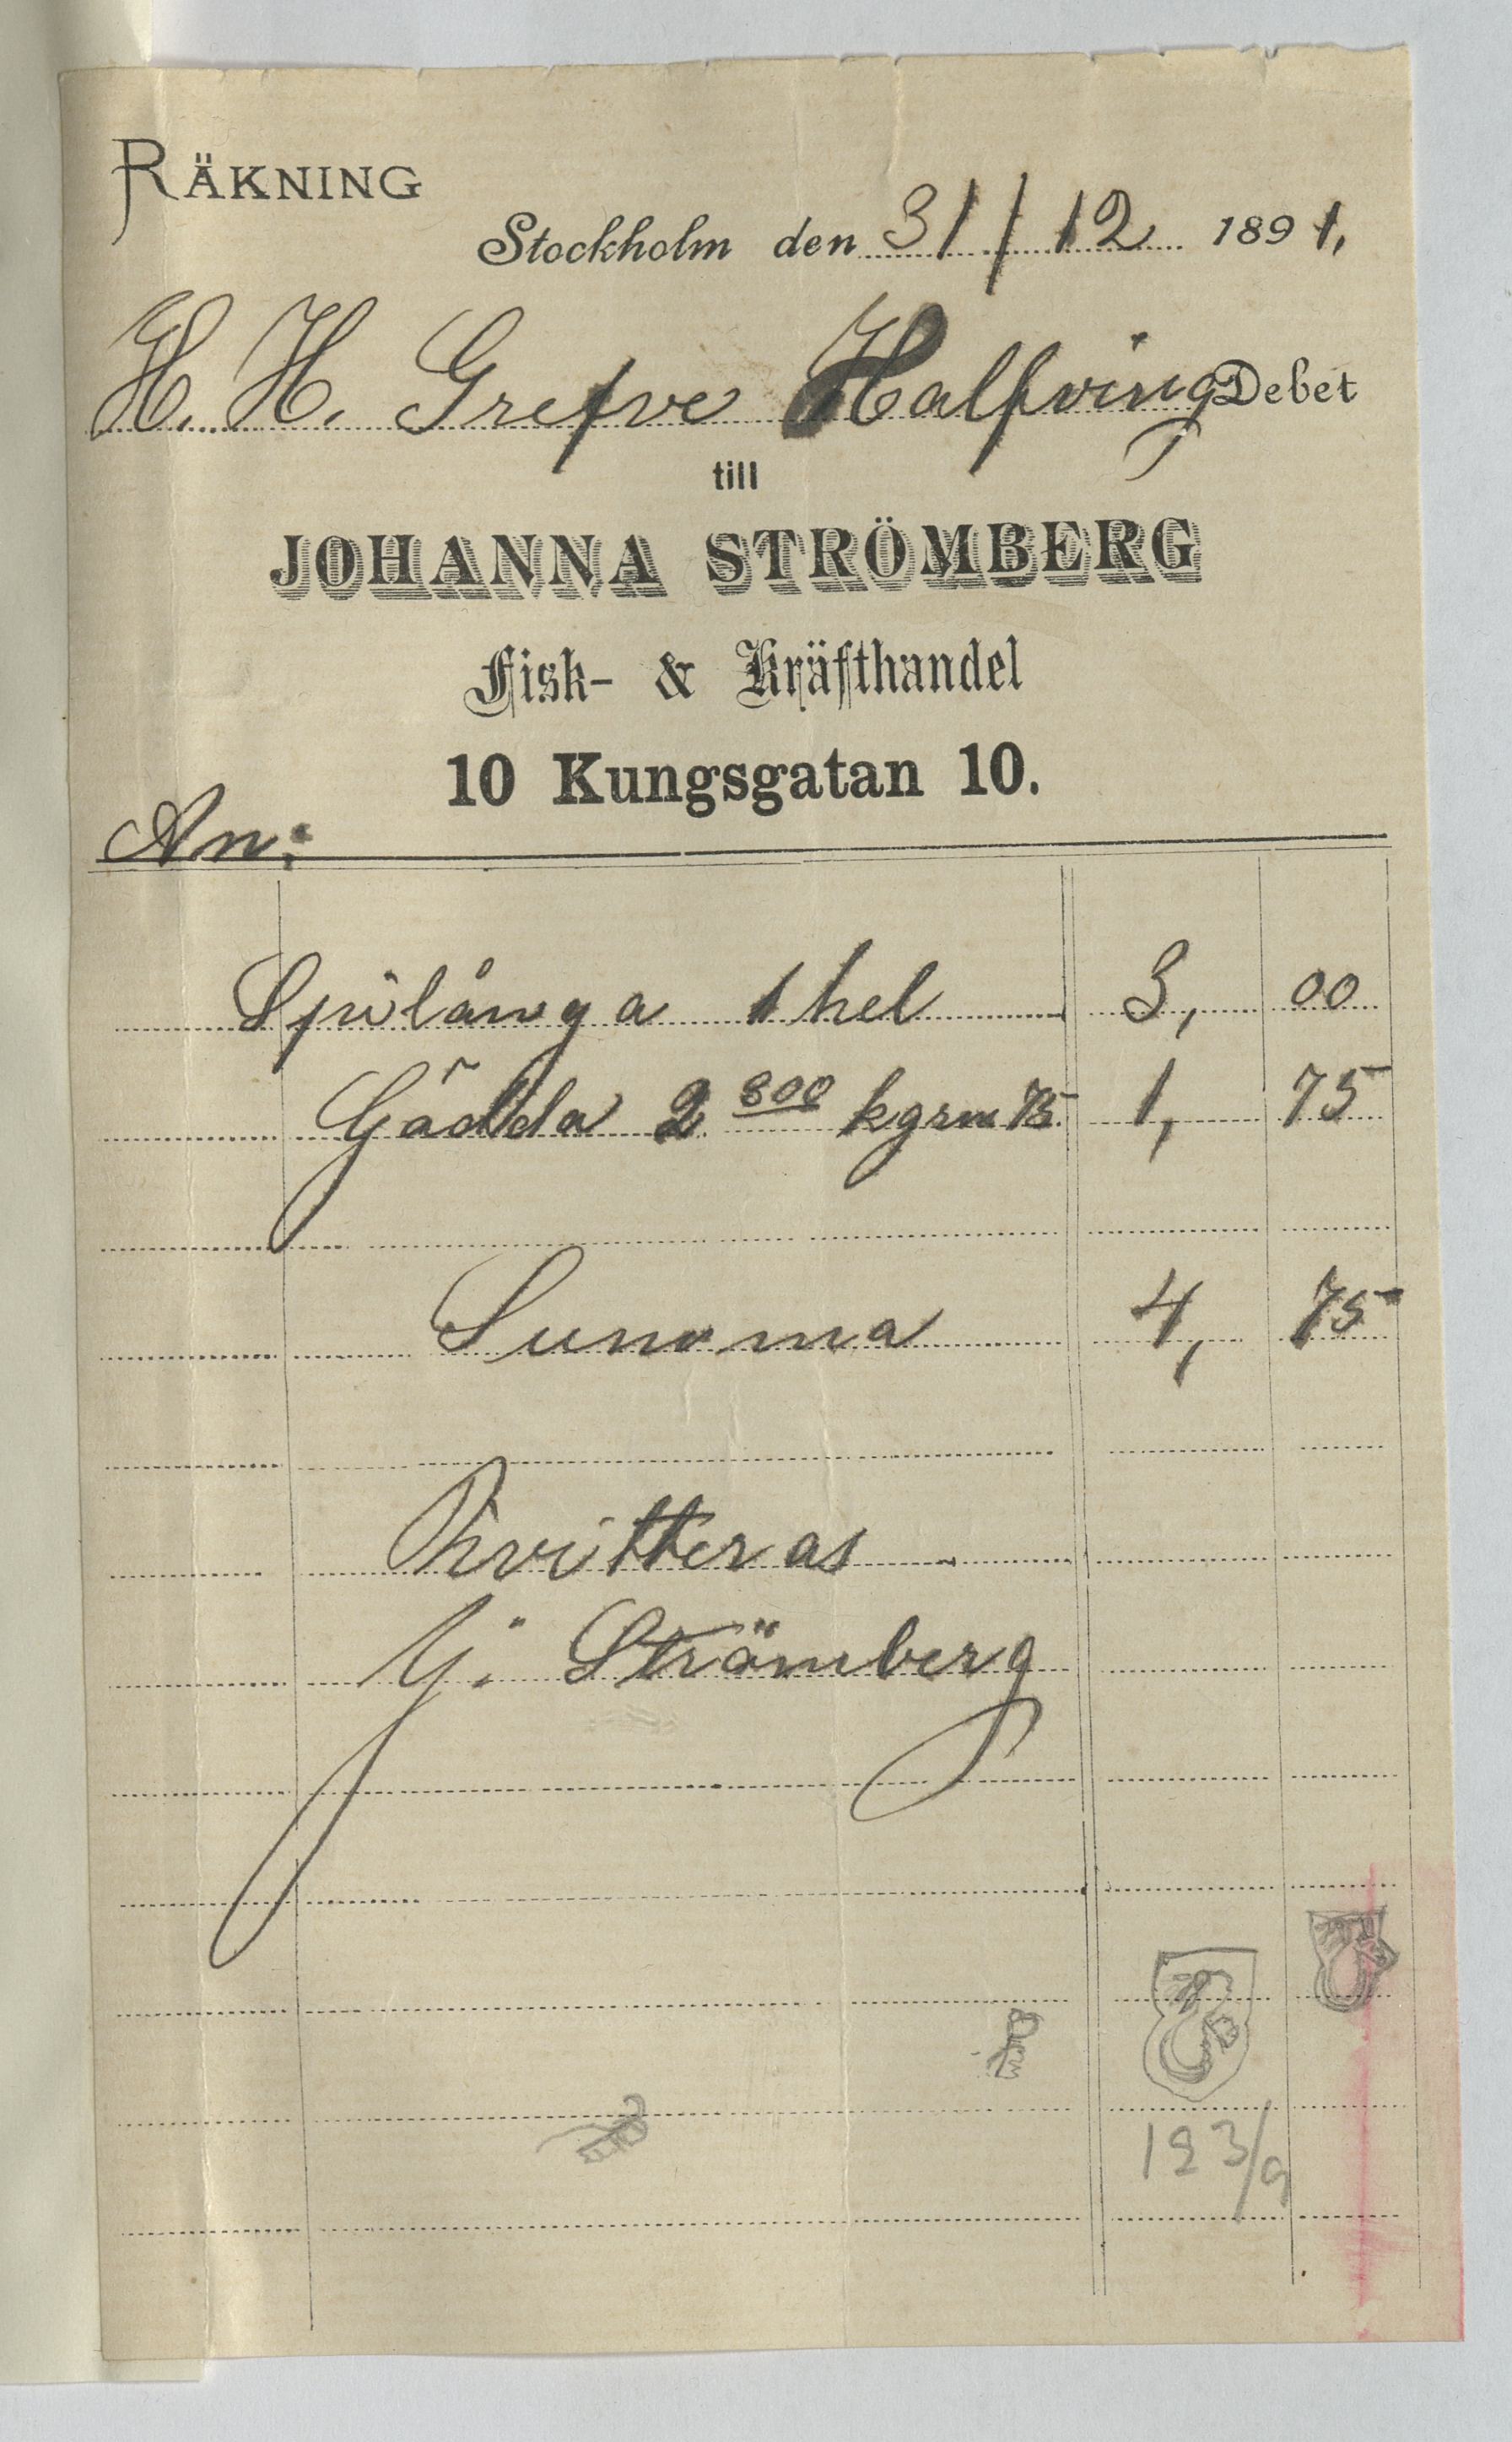 RÄKNING
Stockholm den 31/12 1891.
H. H. Grefve Halfving Debet
till
JOHANNA STRÖMBERG
Fisk- & Kräfthandel
10 Kungsgatan 10.
An:
Spilånga 1 hel 3, 00
Gädda 2 800 kgrm 75 1, 75
Summa 4, 75
Kvitteras
J. Strömberg
123/9